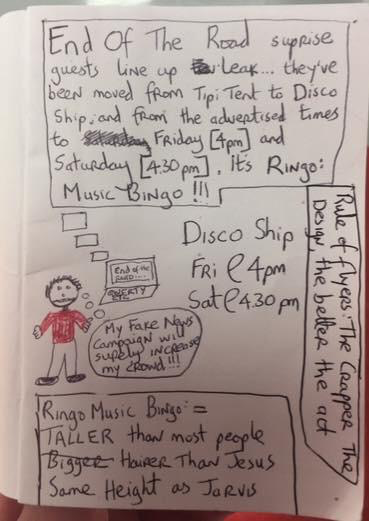 End Of The Road suprise
guests line up Leak... they've
been moved from Tipi Tent to Disco
Ship. and from the advertised times
to Friday [4pm] and
Saturday [4.30pm]. It's Ringo:
Music Bingo!!!
Disco Ship
Fri @ 4pm
Sat @ 4.30pm
End of the
ROAD....
QWERTY
ETC
My Fake News
Campaign will
surely increase
my crowd!!!
Rule of flyers: The Crapper The
Design, the better the act
Ringo Music Bingo:=
TALLER than most people
Bigger Hairer Than Jesus
Same Height as Jarvis